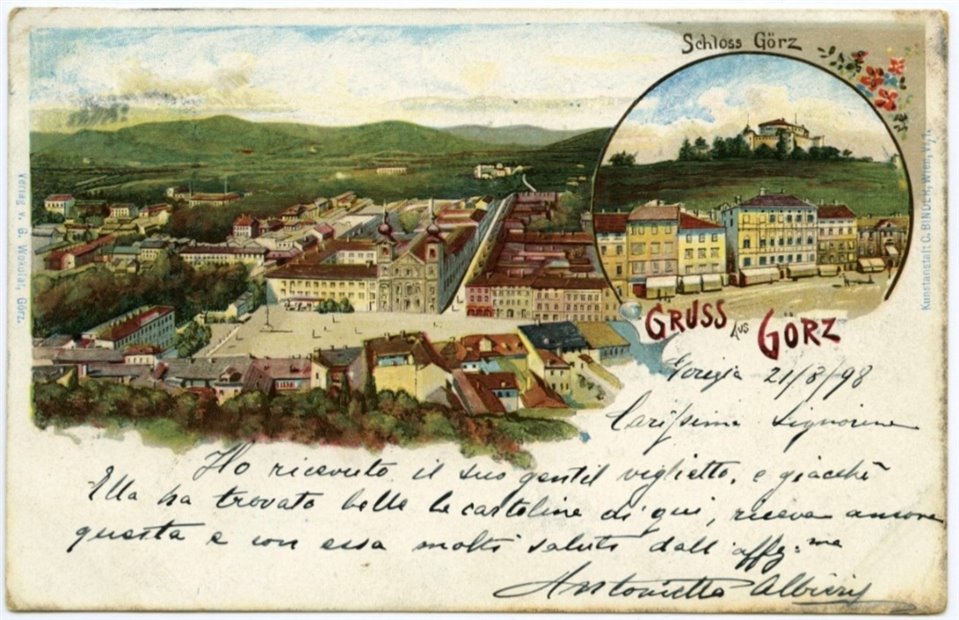 Schloss Görz
Verlag v. G. Wokulat, Görz.
Kunstanstalt C. BINDER, Wien, VI/1.
GRUSS AUS GÖRZ
Gorizia 21/8/98
Carissima Signorina
Ho ricevuto il suo gentil viglietto, e giacchè
Ella ha trovato belle le cartoline di qui, riceva ancora
questa e con essa molti saluti dall'affez:ma
Antonietta